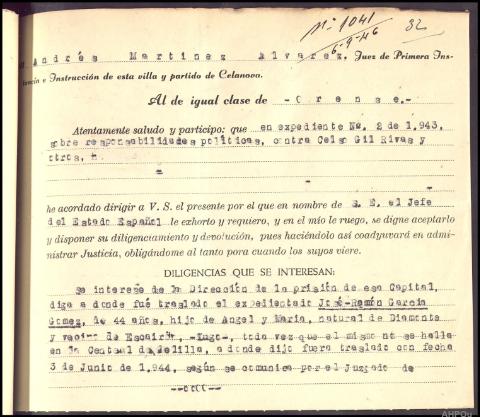 nº 1041
6-9-46
32
Andrés Martinez Alvarez, Juez de Primera Ins-
tancia e Instrucción de esta villa y partido de Celanova.
Al de igual clase de -Orense.-
Atentamente saludo y participo: que en expediente No. 2 de 1.943,
sobre responsabilidades políticas, contra Celso Gil Rivas y
otros,
he acordado dirigir a V. S. el presente por el que en nombre de S. E. el Jefe
del Estado Español le exhorto y requiero, y en el mío le ruego, se digne aceptarlo
y disponer su diligenciamiento y devolución, pues haciéndolo así coadyuvará en admi-
nistrar Justicia, obligándome al tanto para cuando los suyos viere.
DILIGENCIAS QUE SE INTERESAN:
Se interese de la Dirección de la prisión de esa Capital,
diga a donde fué traslado el expedientado José-Ramón García
Gomez, de 44 años, hijo de Angel y Maria, natural de Diamonte
y vecino de Escairón, -Lugo-, toda vez que el mismo no se halla
en la Central de Melilla, a donde dijo fuera traslado con fecha
3 de Junio de 1.944, según se comunica por el Juzgado de
AHPOu